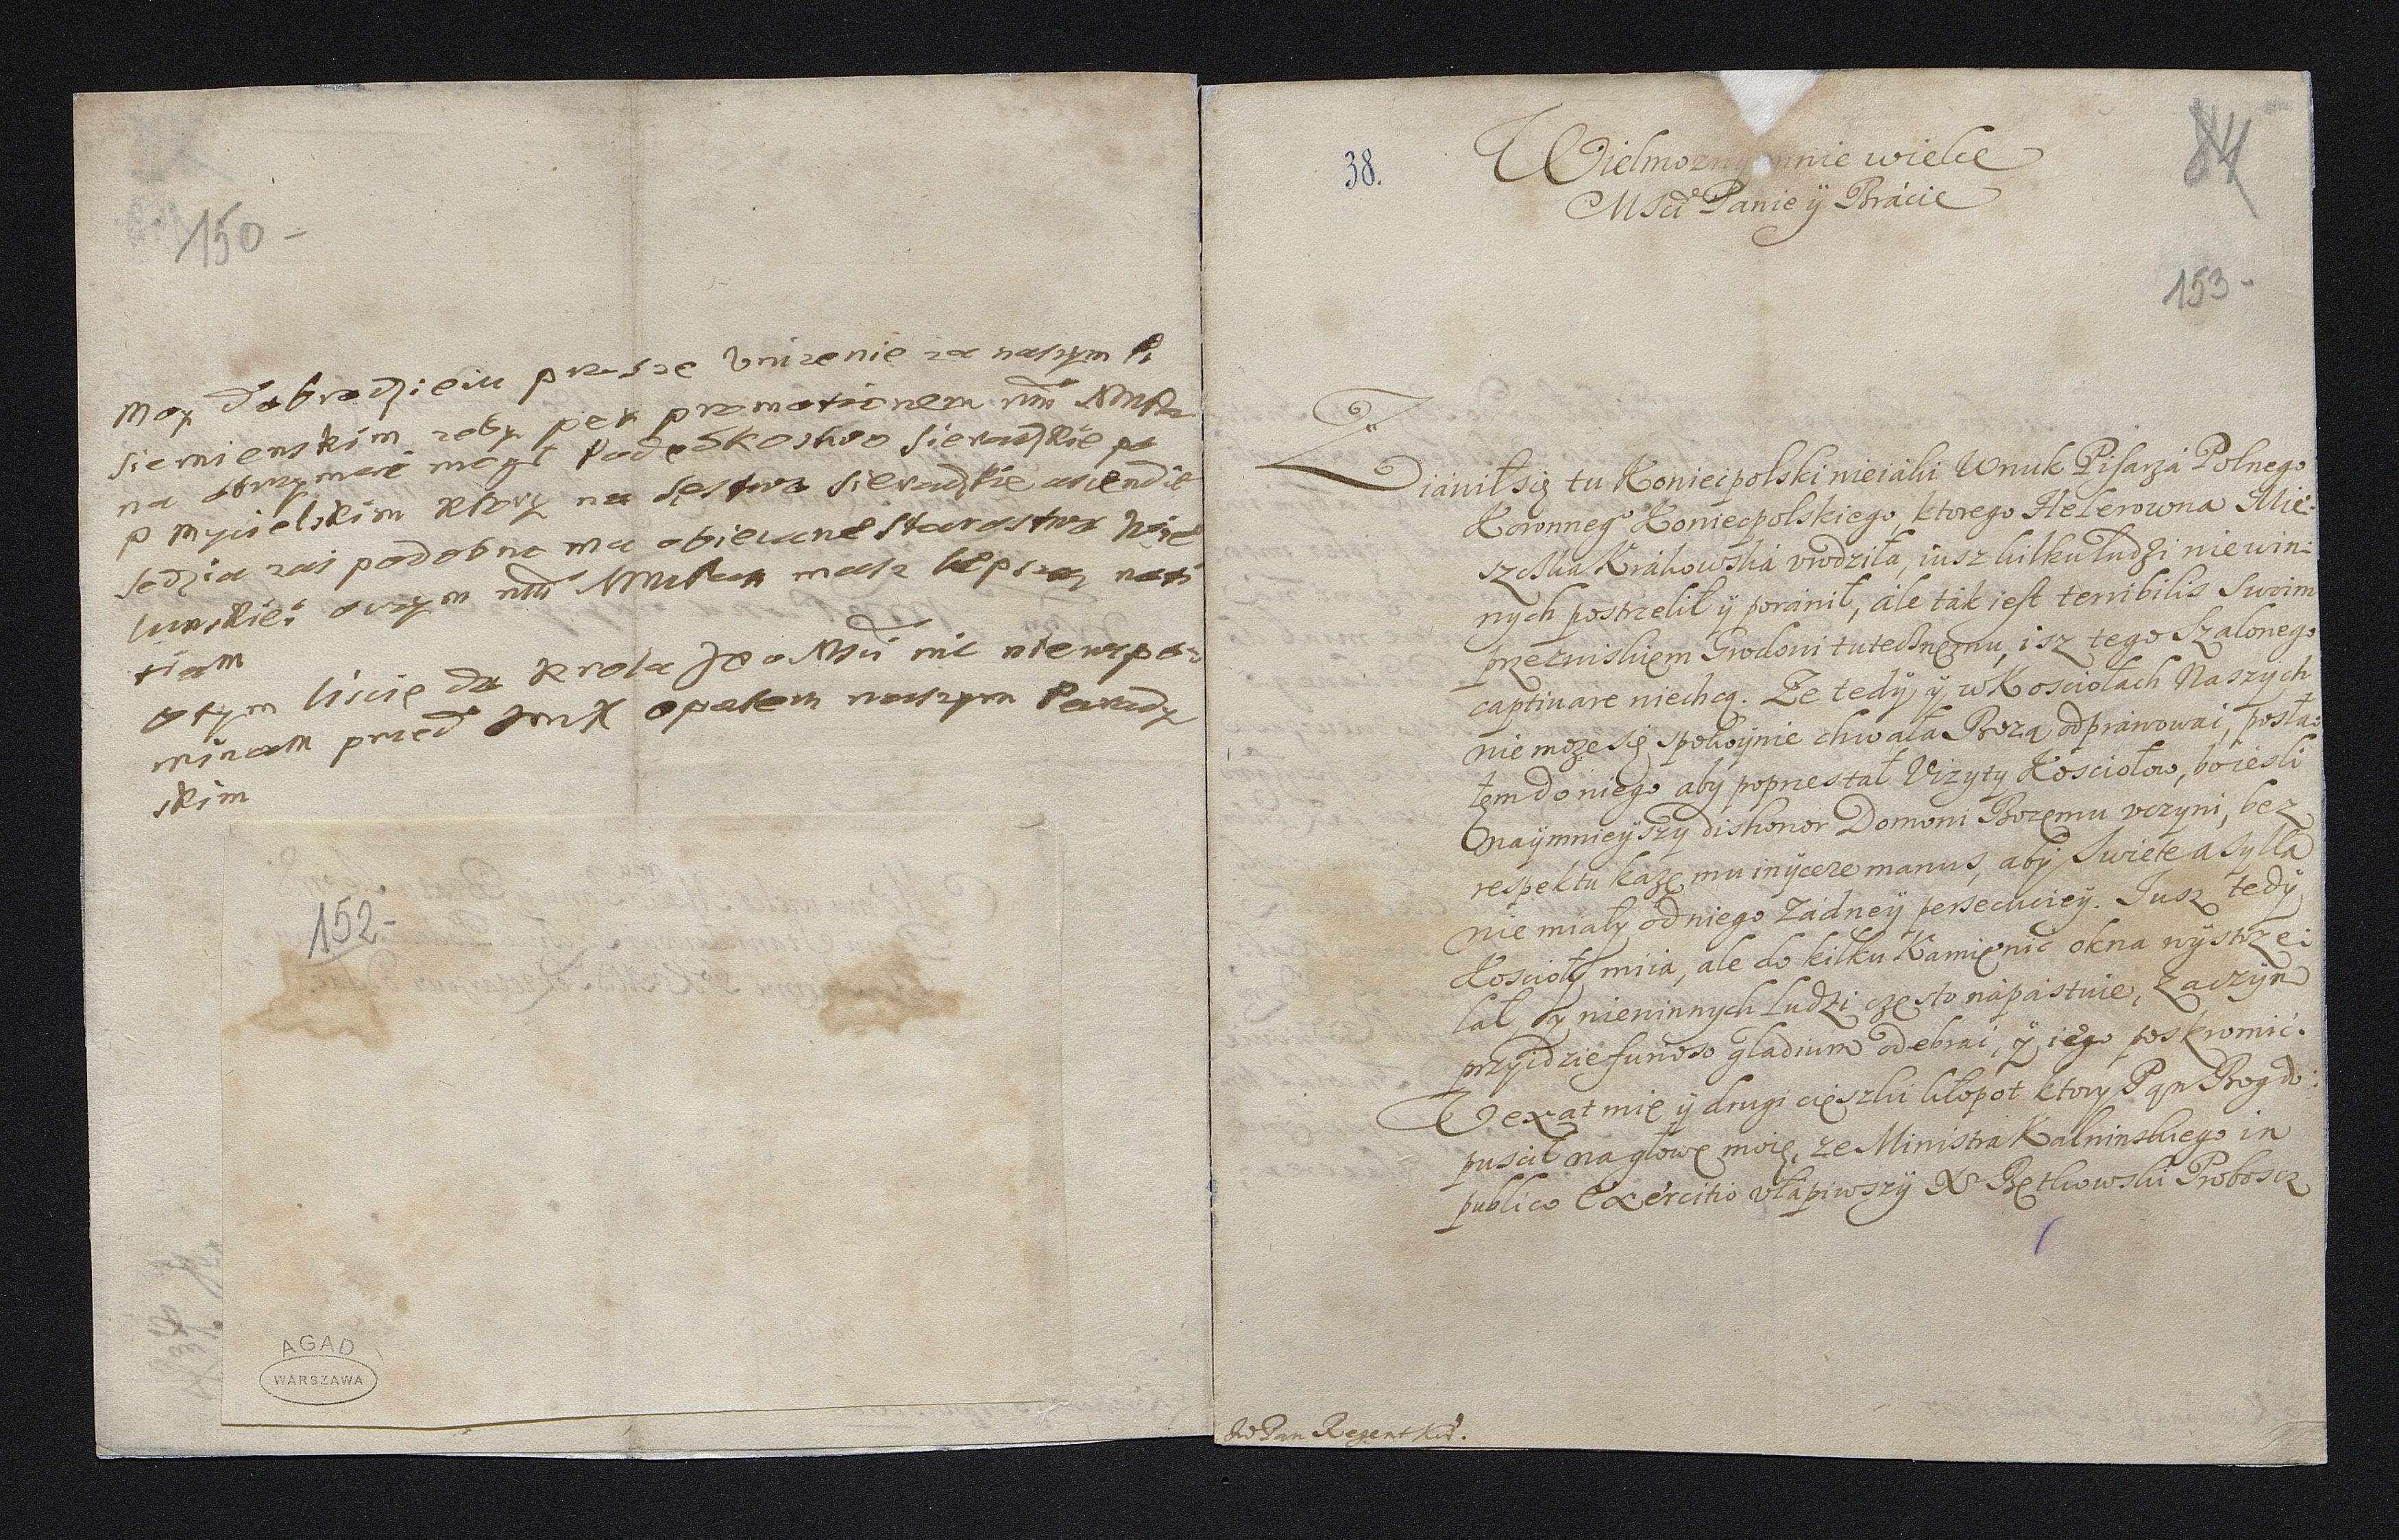 150-
moy dobrodzieiu prosze Vnizenie za naszym P.
Siemienskim zeby per promotionem
na otrzymać mogł Podczostwo Sieradzkie po
P Mycielskim ktory na Sęstwo Sieradzkie ascendit
Sędzia zas podobno ma obiecane Starostwo Wie
lunskie: oczym masz lepszą noti
tiam
otym liscie do Krola JeoMsci nic niewspo-
minam przed JmX opatem naszym Parady
skim
152-
AGAD
WARSZAWA
38.
84
Wielmozny mnie wielce
Mscie Panie ÿ Brácie
153-
Ziáwił się tu Koniecpolski nieiáki Wnuk Pisarzá Polnego
Koronnego Koniecpolskiego, ktorego Helerowna Mie-
szczka Krákowska vrodziła, iusz kilku ludzi niewin:
nych postrzelił ÿ poránił, ále ták iest terribilis Swoim
przezwiskiem Grodowi tutecznemu, isz tego Szalonego
captivare niechcą. Ze tedÿ ÿ w Kosciołach Naszych
nie może się spokoÿnie chwała Bozą odprawowai, posła:
łem do niego aby poprzestał Vizyty Kosciołow, bo iesli
naÿmnieÿszy dishonor Domowi Bozemu vczyni, bez
respektu każę mu inÿcere manus, abÿ Swiete asylla
nie miały od niego żádneÿ persecuciey. Iusz tedÿ
Kosciołÿ miia, ale do kilku Kamięnic okna wÿstrze:
lał, ÿ niewinnych ludzi często nápástuie, zaczÿm
przÿidzie furioso gladium odebrai, ÿ iego poskromić.
Vexat mię ÿ drugi cięszki kłopot ktorÿ Pąn Bog do:
puscił na głowę moię, ze Ministra Kalninskiego in
publico Exércitio vłápiwszÿ X Bętkowski Proboscz
Pan Regent